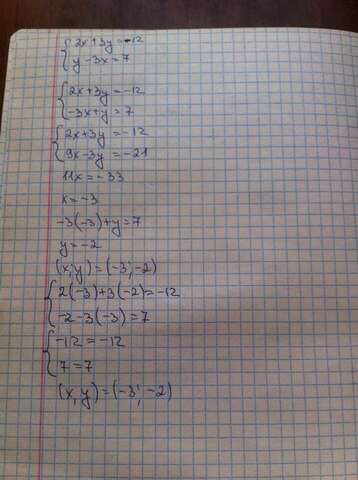 2x+3y=-12
y-3x=7
2x+3y=-12
-3x+y=7
2x+3y=-12
9x-3y=-21
11x=-33
x=-3
-3(-3)+y=7
y=-2
(x;y)=(-3;-2)
2(-3)+3(-2)=-12
-2-3(-3)=7
-12=-12
7=7
(x,y)=(-3;-2)